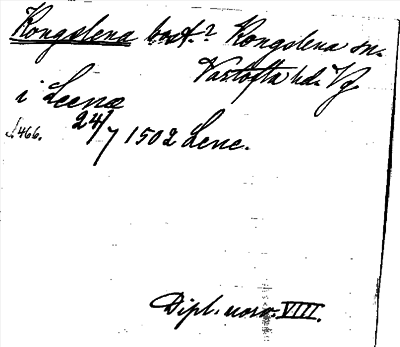 Kongslena bost.? Kongslena sn.
Vartofta hd. Vg.
i Leenæ
s. 466. 24/7 1502 Lene.
Dipl. norv. VIII.